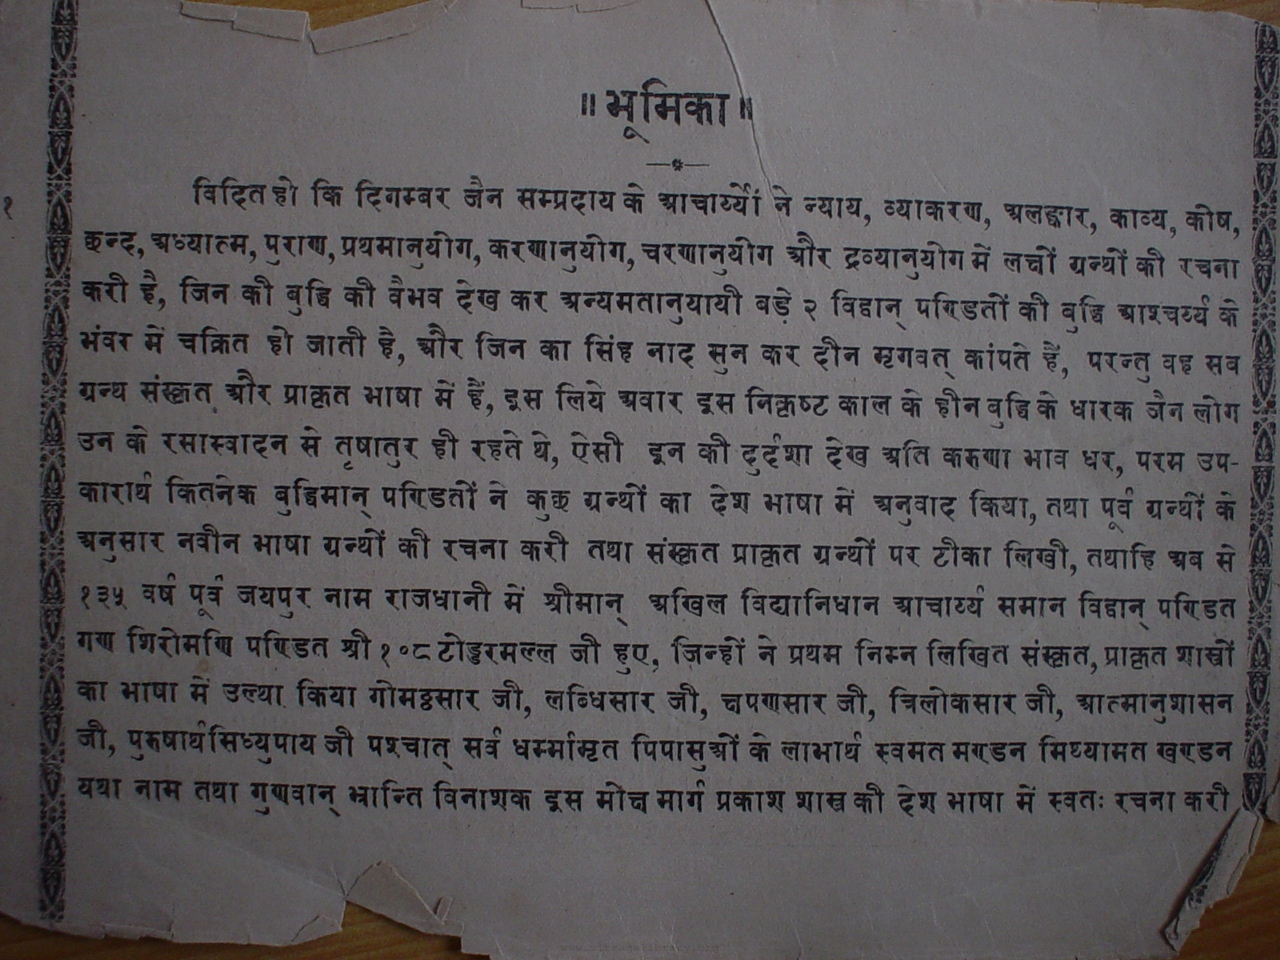 ॥ भूमिका ॥
१
विदित हो कि दिगम्बर जैन सम्प्रदाय के आचार्य्यों ने न्याय, व्याकरण, अलङ्कार, काव्य, कोष,
छन्द, अध्यात्म, पुराण, प्रथमानुयोग, करणानुयोग, चरणानुयोग और द्रव्यानुयोग में लक्षों ग्रन्थों की रचना
करी है, जिन की बुद्धि की वैभव देख कर अन्यमतानुयायी बड़े २ विद्वान् पण्डितों की बुद्धि आश्चर्य्य के
भंवर में चक्रित हो जाती है, और जिन का सिंह नाद सुन कर दीन मृगवत् कांपते हैं, परन्तु वह सब
ग्रन्थ संस्कृत और प्राकृत भाषा में हैं, इस लिये अवार इस निकृष्ट काल के हीन बुद्धि के धारक जैन लोग
उन के रसास्वादन से तृषातुर ही रहते थे, ऐसी इन की दुर्दशा देख अति करुणा भाव धर, परम उप-
कारार्थ कितनेक बुद्धिमान् पण्डितों ने कुछ ग्रन्थों का देश भाषा में अनुवाद किया, तथा पूर्व ग्रन्थों के
अनुसार नवीन भाषा ग्रन्थों की रचना करी तथा संस्कृत प्राकृत ग्रन्थों पर टीका लिखी, तथाहि अब से
१३५ वर्ष पूर्व जयपुर नाम राजधानी में श्रीमान् अखिल विद्यानिधान आचार्य्य समान विद्वान् पण्डित
गण शिरोमणि पण्डित श्री १०८ टोडरमल्ल जी हुए, जिन्हों ने प्रथम निम्न लिखित संस्कृत, प्राकृत शास्त्रों
का भाषा में उल्था किया गोमट्टसार जी, लब्धिसार जी, क्षपणसार जी, त्रिलोकसार जी, आत्मानुशासन
जी, पुरुषार्थसिध्युपाय जी पश्चात् सर्व धर्म्मामृत पिपासुओं के लाभार्थ स्वमत मण्डन मिथ्यामत खण्डन
यथा नाम तथा गुणवान् भ्रान्ति विनाशक इस मोक्ष मार्ग प्रकाश शास्त्र की देश भाषा में स्वतः रचना करी